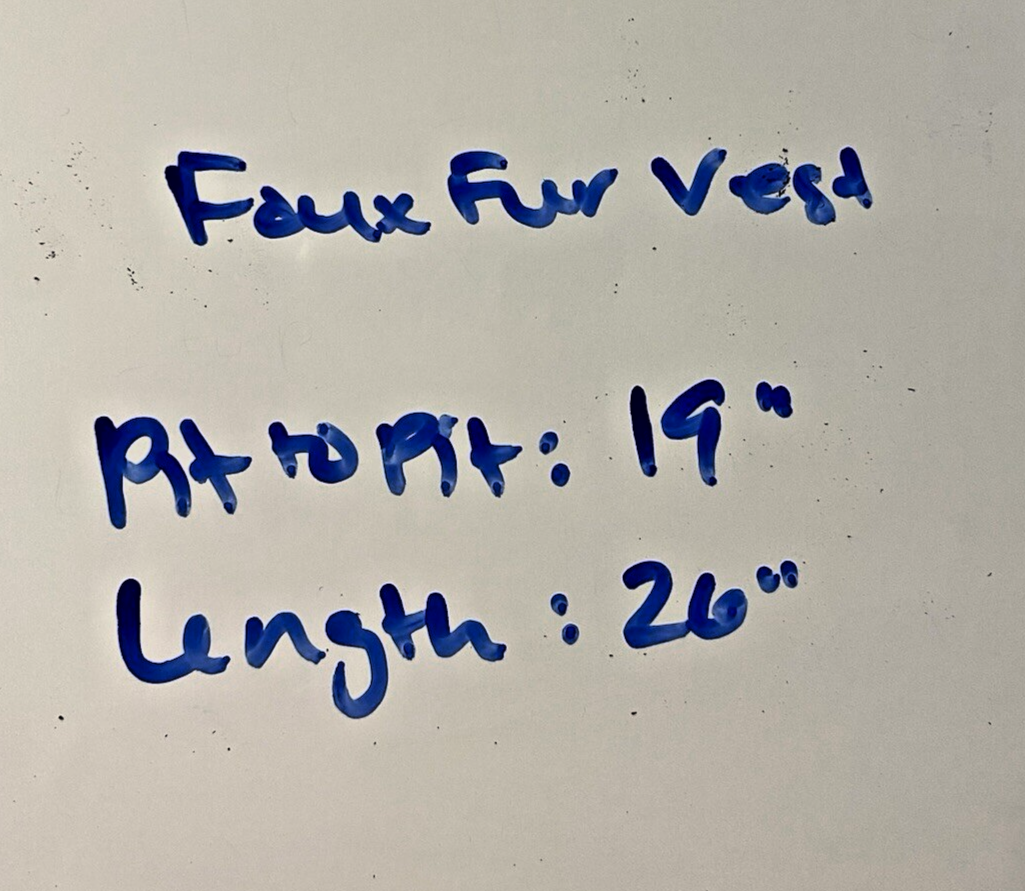 Faux Fur Vest
Pit to Pit: 19"
Length: 26"